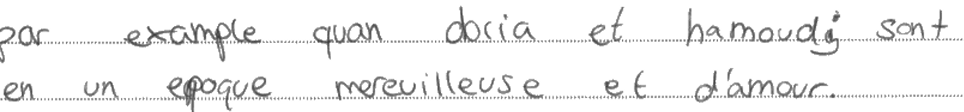 par example quan docia et hamoudi sont
en un epoque mereuilleuse et d'amour.